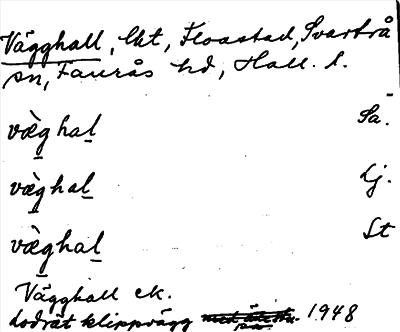 Vägghall, lkt, Floastad, Svartrå
sn, Faurås hd, Hall. l.
væ̀g hal Sä.
væ̀g hal Lj.
væ̀g hal St
Vägghall ek.
lodrät klippvägg 1948